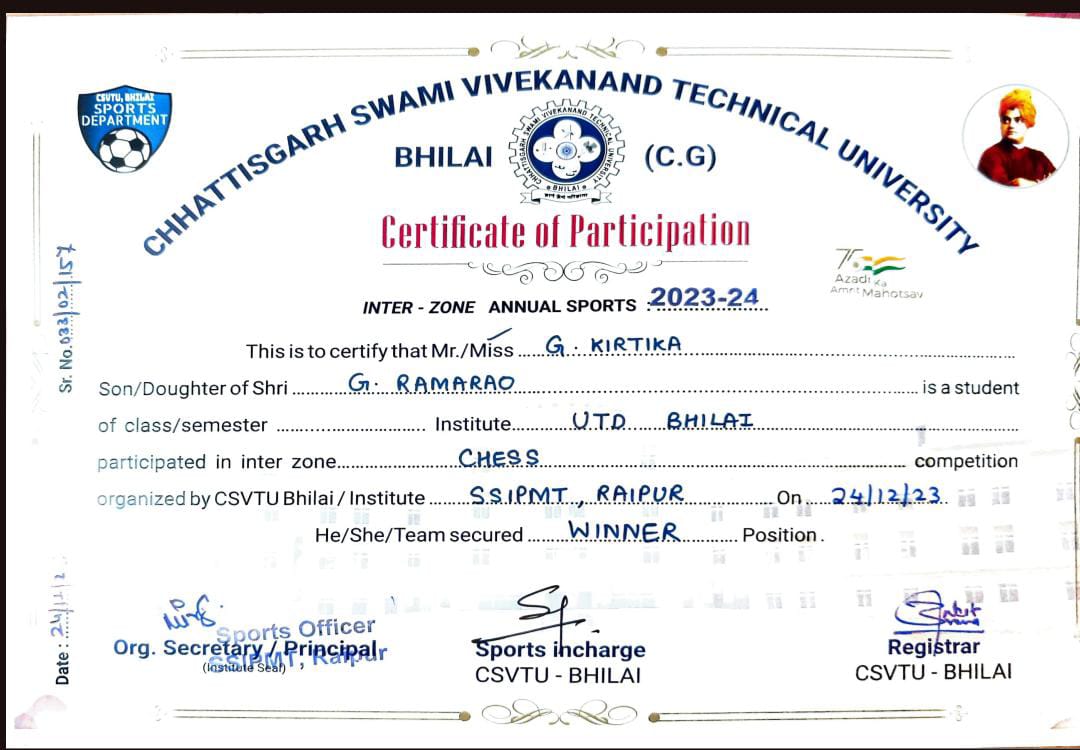 CSVTU, BHILAI
SPORTS
DEPARTMENT
CHHATTISGARH SWAMI VIVEKANAND TECHNICAL UNIVERSITY
BHILAI (C.G)
CHHATTISGARH SWAMI VIVEKANAND TECHNICAL UNIVERSITY
BHILAI
Certificate of Participation
75
Azadi Ka
Amrit Mahotsav
INTER - ZONE ANNUAL SPORTS : 2023-24
Sr. No. 033/02/157
This is to certify that Mr./Miss G. KIRTIKA
Son/Doughter of Shri G. RAMARAO is a student
of class/semester Institute UTD BHILAI
participated in inter zone CHESS competition
organized by CSVTU Bhilai / Institute SSIPMT, RAIPUR On 24/12/23
He/She/Team secured WINNER Position.
Date : 24/12/2
Sports Officer
SSIPMT, Raipur
Org. Secretary / Principal
(Institute Seal)
Sports incharge
CSVTU - BHILAI
Registrar
CSVTU - BHILAI